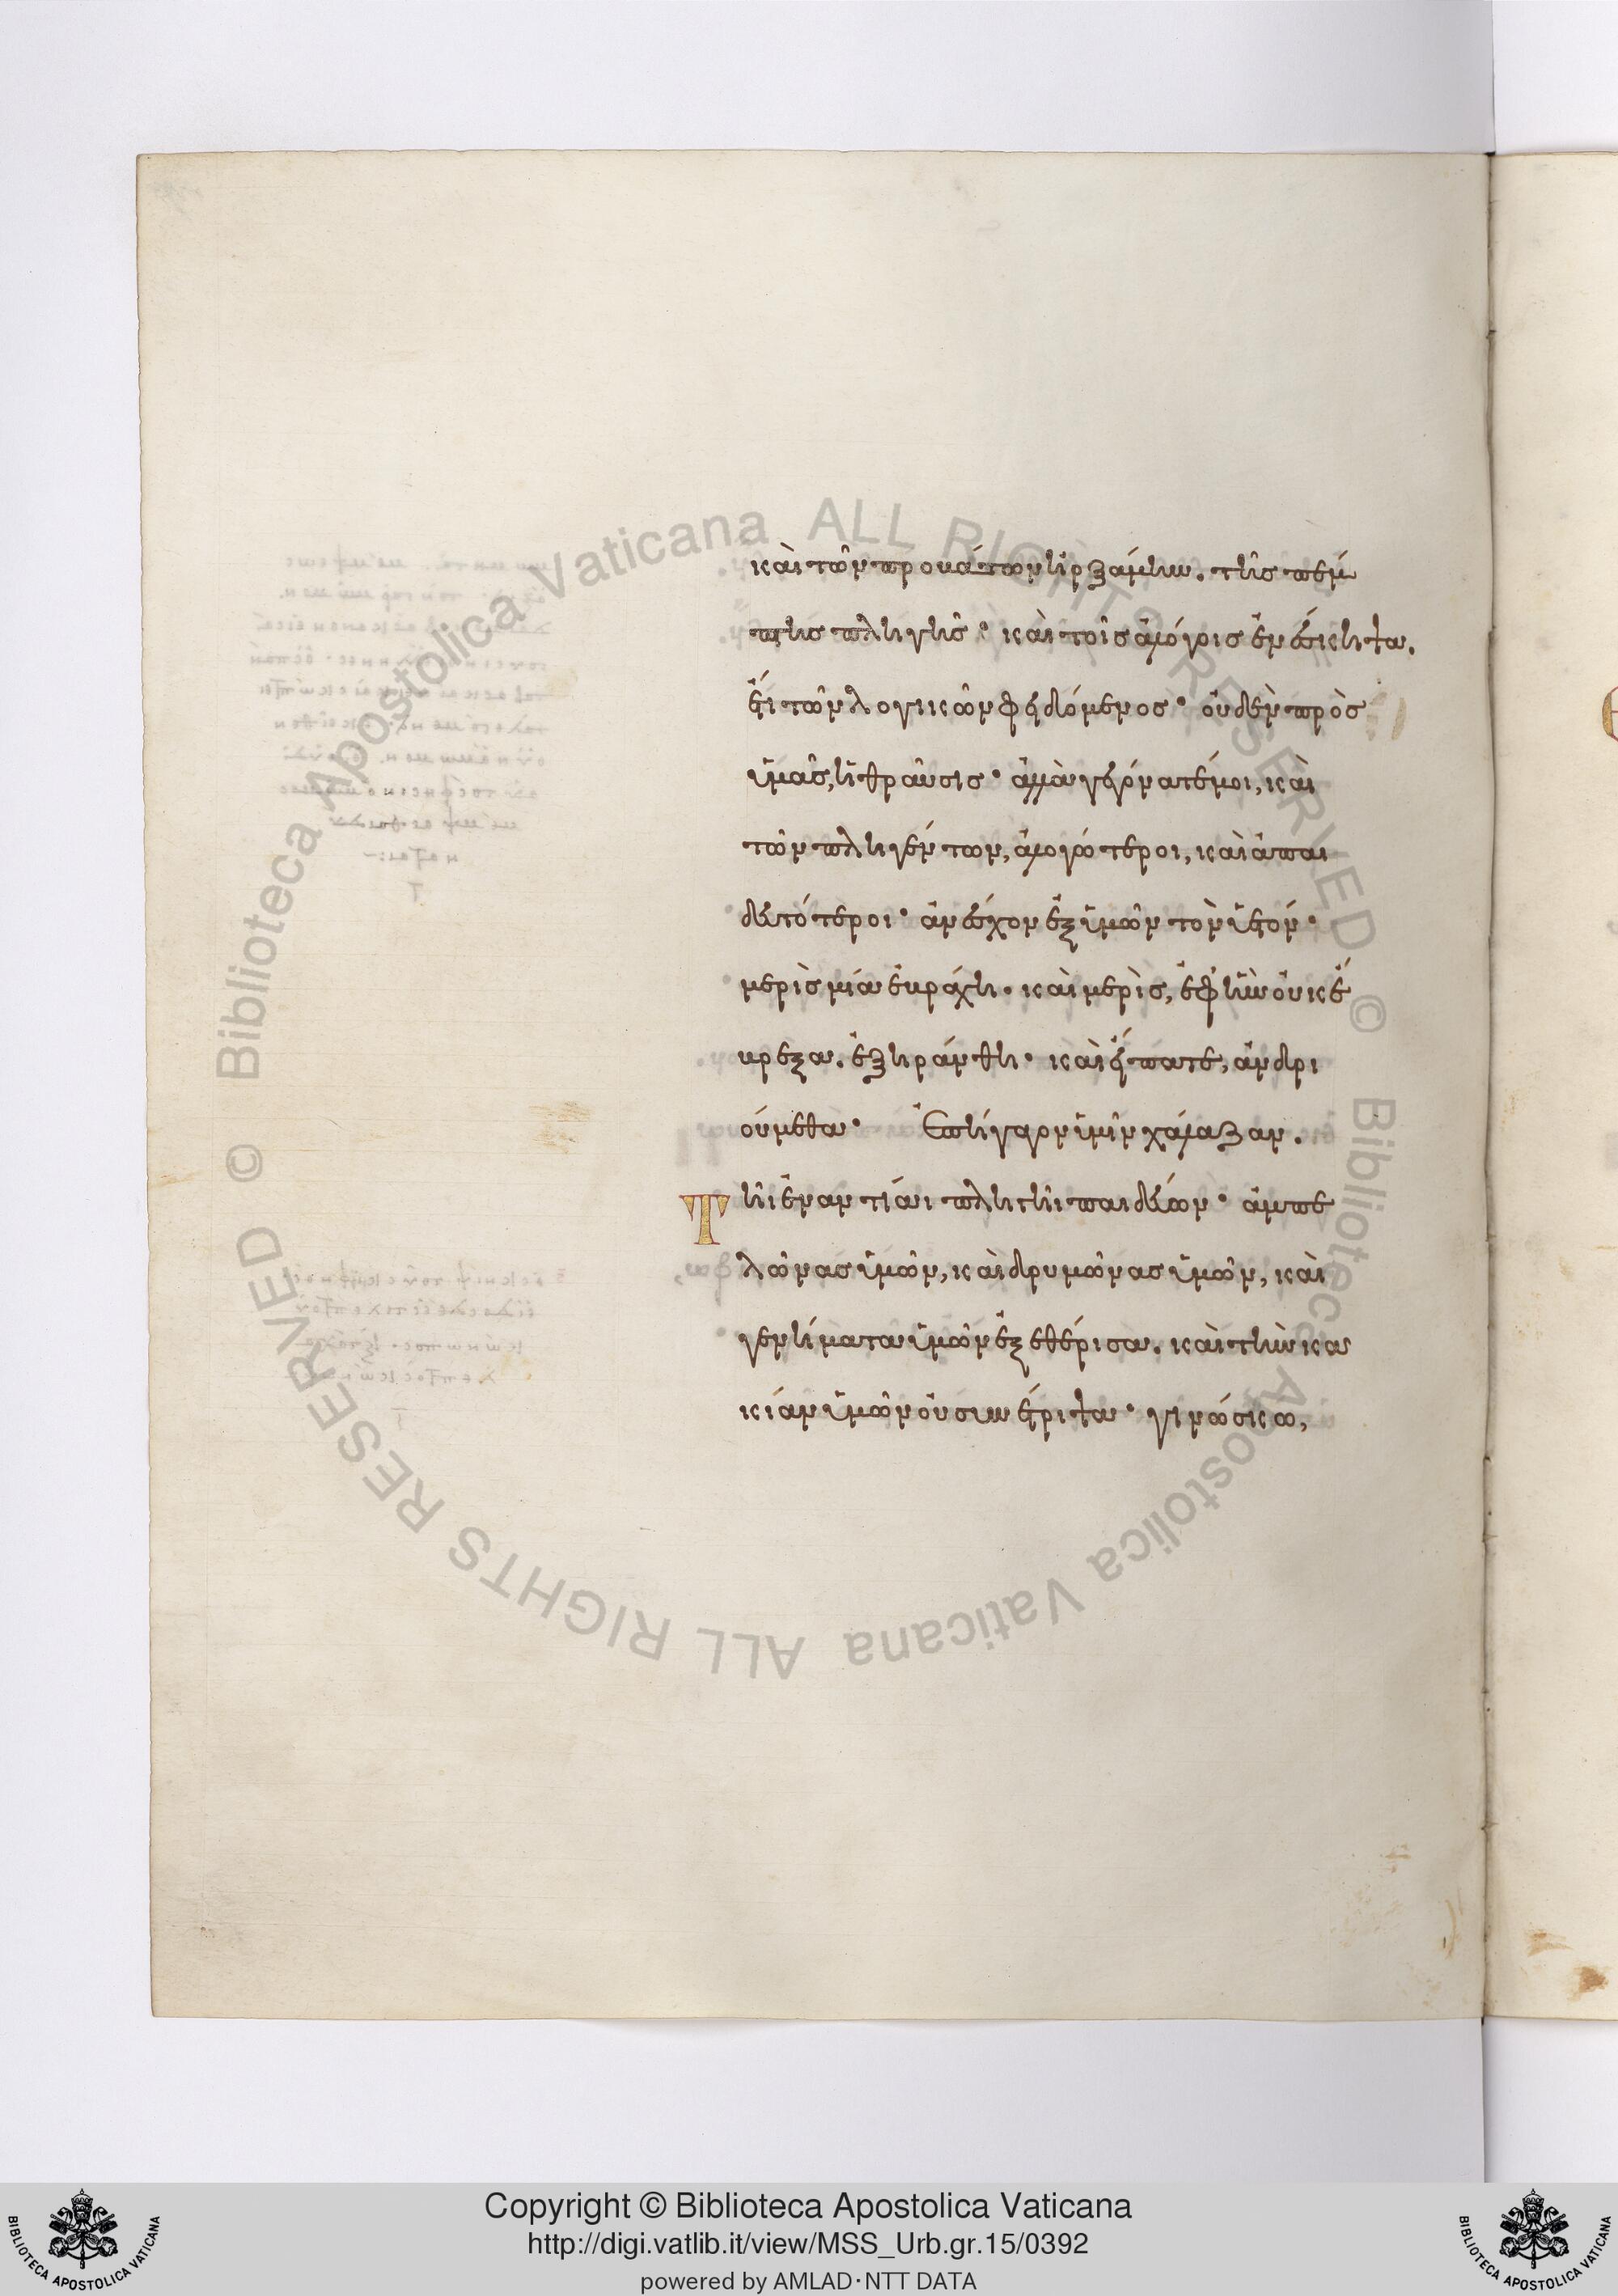 καὶ τῶν προβάτων ἠρξάμην. τῆς πέμ
πτης πληγῆς· καὶ τοῖς ἀλόγοις ἐνέσκηψα.
ἔτι τῶν λογικῶν φειδόμενος· οὐδὲν πρὸς
ὑμᾶς, ἡ θραῦσις· ἀλλὰ γεγόνατέ μοι, καὶ
τῶν πληγέντων, ἀλογώτεροι, καὶ ἀπαι
δευτότεροι· ἀνέσχον ἐξ ὑμῶν τὸν ὑετόν·
μερὶς μία ἐβράχη. καὶ μερὶς, ἐφ' ἣν οὐκ ἔ
βρεξα. ἐξηράνθη· καὶ εἴπατε, ἀνδρι
ούμεθα· Ἐπήγαγον ὑμῖν χάλαζαν.
Τῆι ἐναντίαι πληγῆι παιδεύων· ἀμπε
λῶνας ὑμῶν, καὶ δρυμῶνας ὑμῶν, καὶ
γενήματα ὑμῶν ἐξεθέρισα. καὶ τὴν κα
κίαν ὑμῶν οὐ συνέτριψα· γινώσκω,
Copyright © Biblioteca Apostolica Vaticana
http://digi.vatlib.it/view/MSS_Urb.gr.15/0392
powered by AMLAD·NTT DATA
BIBLIOTECA APOSTOLICA VATICANA
BIBLIOTECA APOSTOLICA VATICANA
© Biblioteca Apostolica Vaticana ALL RIGHTS RESERVED
© Biblioteca Apostolica Vaticana ALL RIGHTS RESERVED